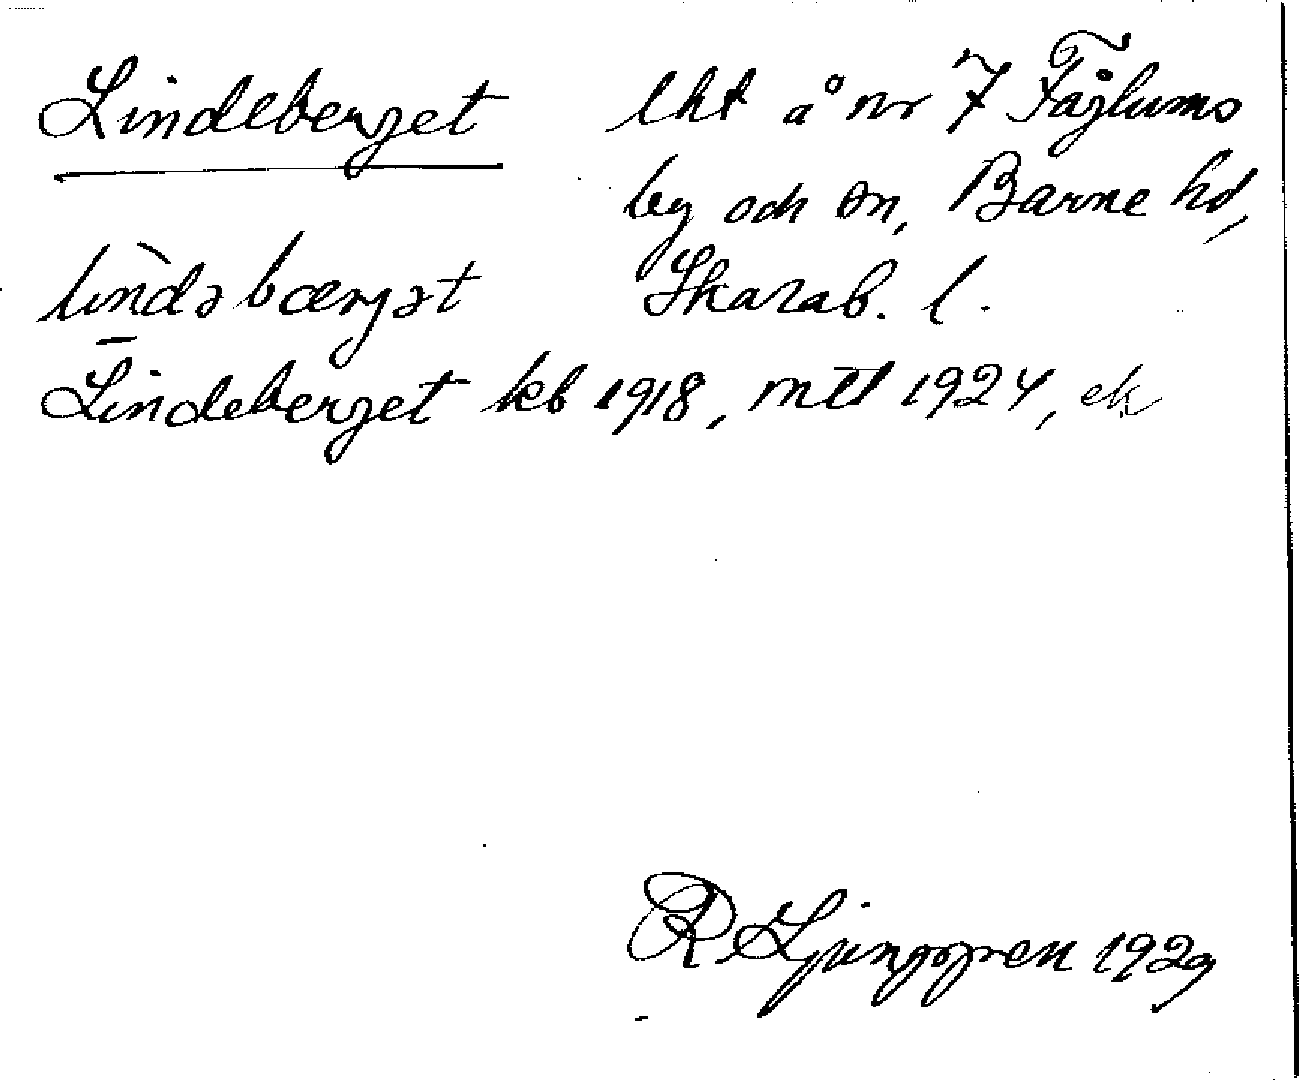 Lindeberget lht å nr 7 Fåglums
by och sn, Barne hd,
lìndəbærjət Skarab. l.
Lindeberget kb 1918, mtl 1924, ek
R Ljunggren 1929